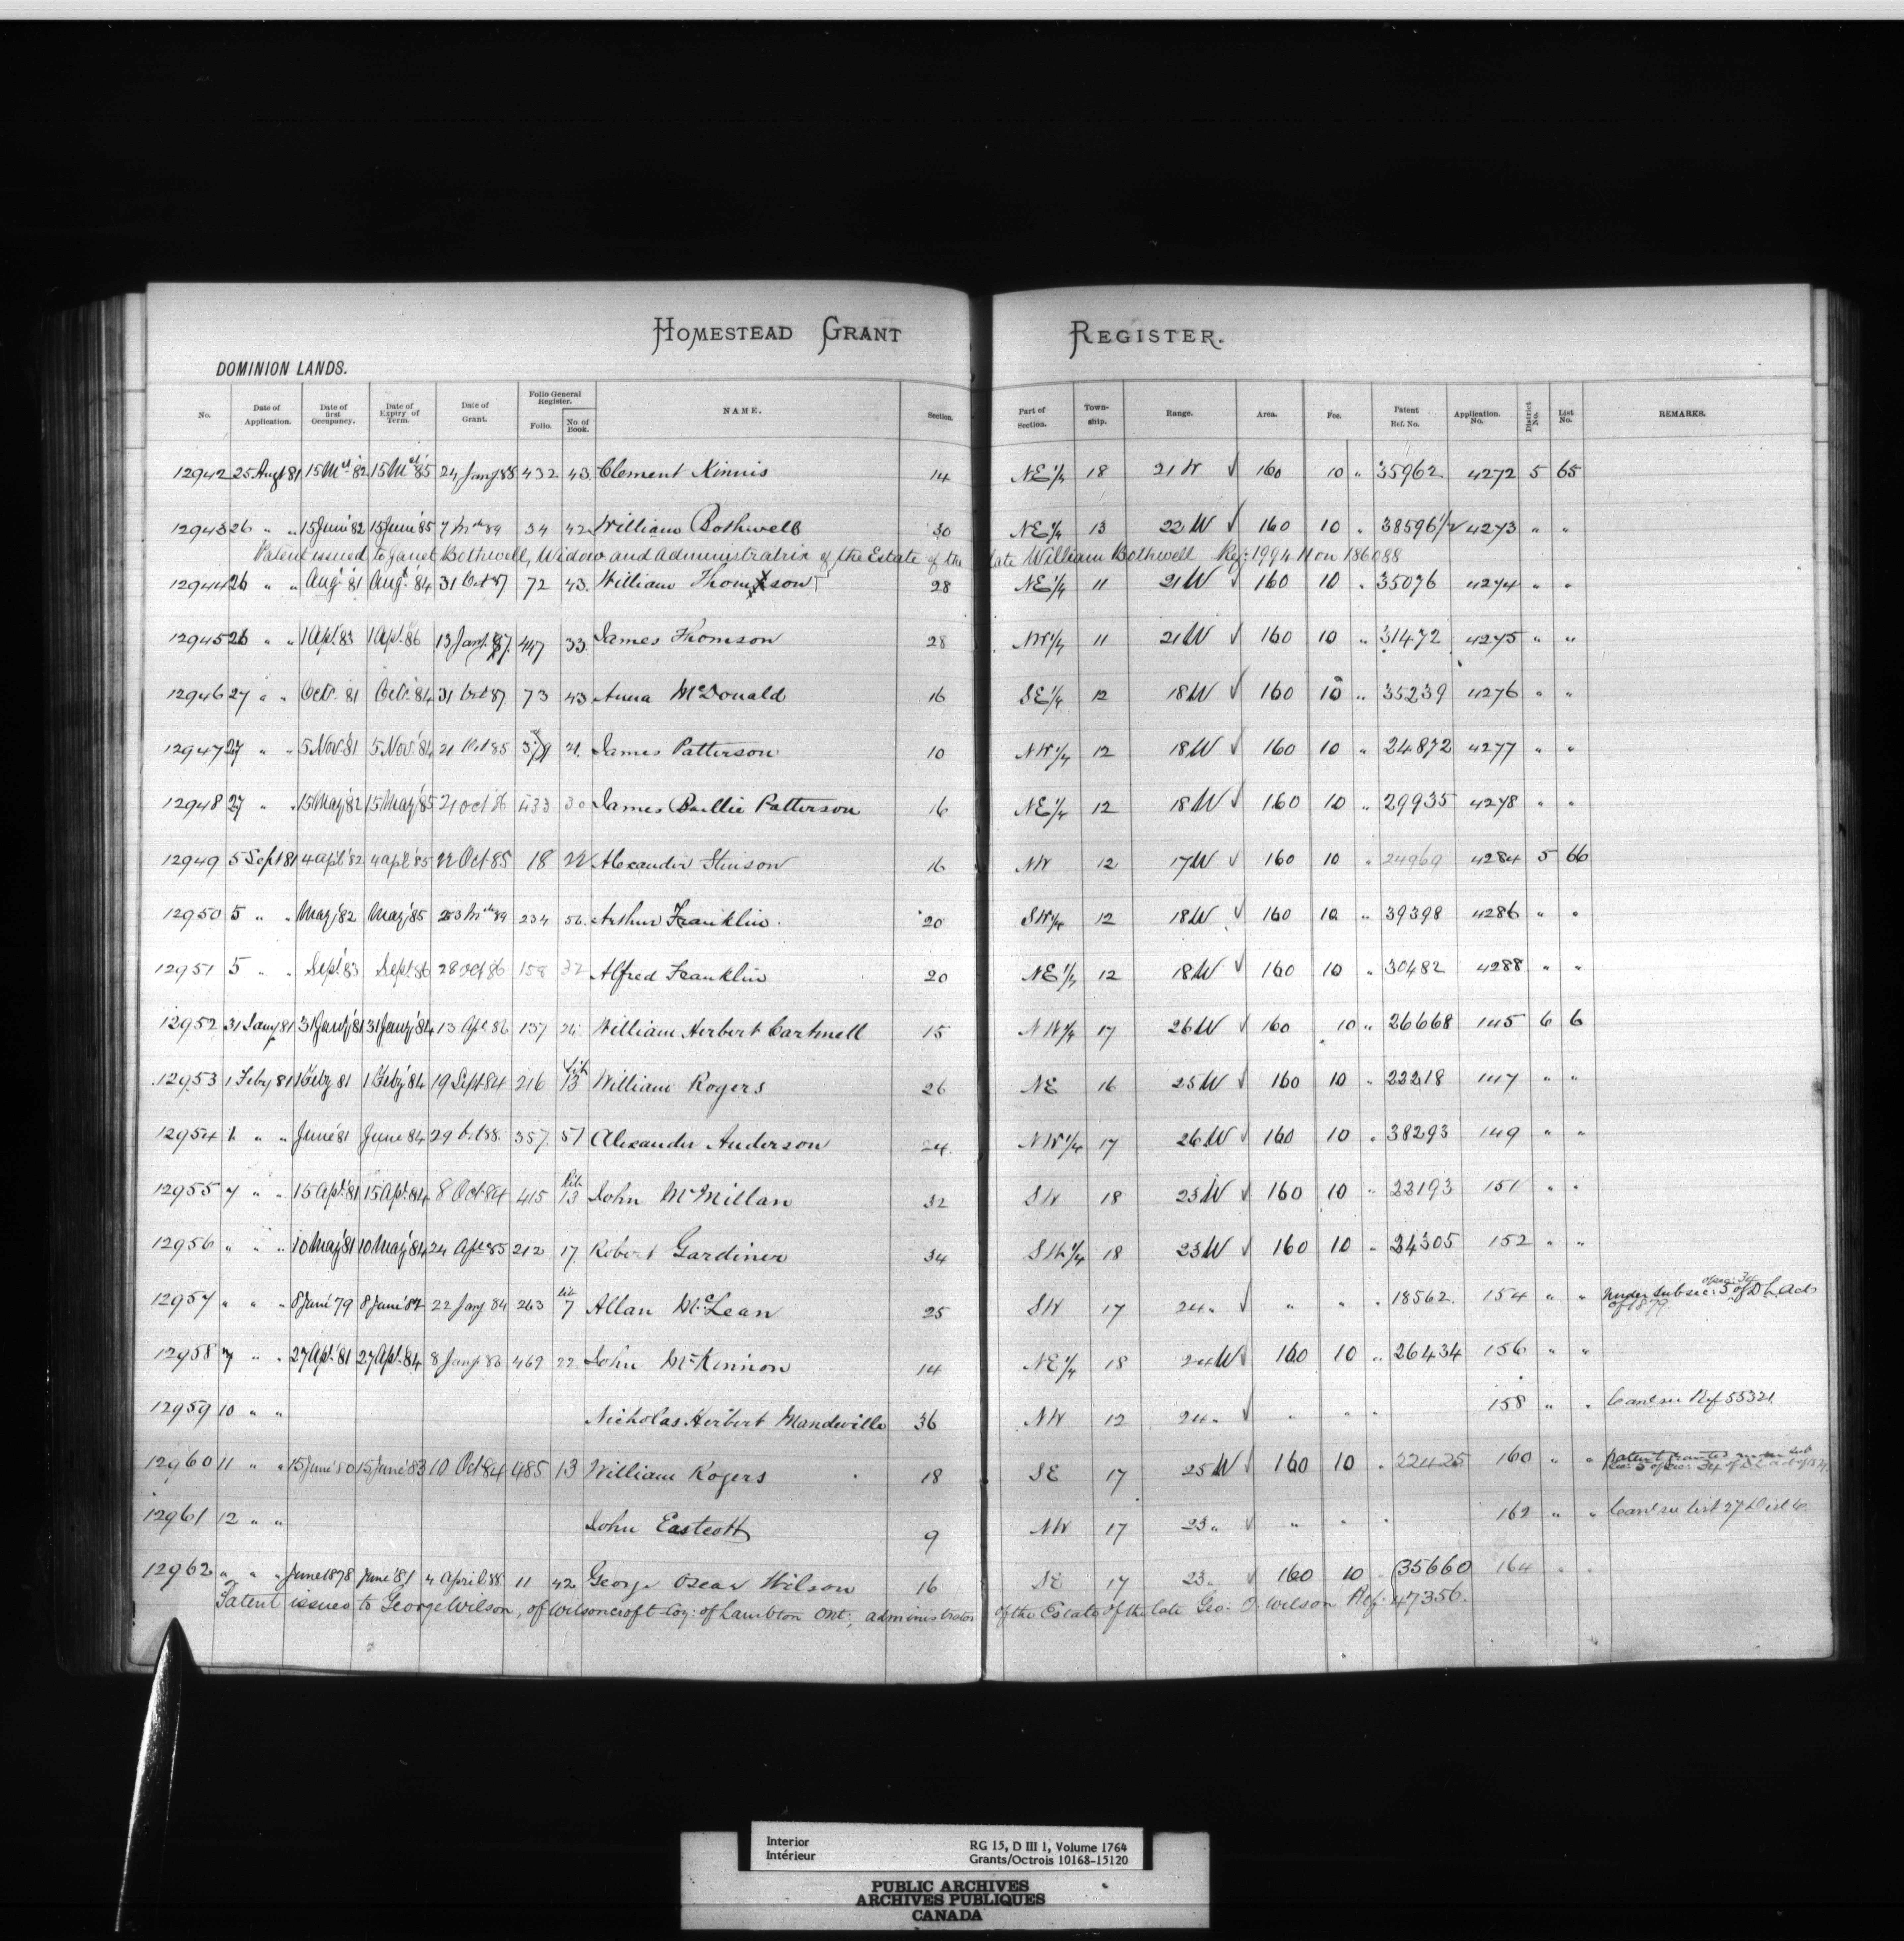 HOMESTEAD GRANT REGISTER.
DOMINION LANDS.
No. Date of Application. Date of first Occupancy. Date of Expiry of Term. Date of Grant. Folio General Register. Folio. No. of Book. NAME. Section. Part of Section. Town-ship. Range. Area. Fee. Patent Ref. No. Application. No. District No. List No. REMARKS.
12942 25 Augt 81 15 '82 15 '85 24 Jany 88 432 43 Clement Kinnis 14 NE 1/4 18 21 W √ 160 10 " 35962 4272 5 65
12943 26 " " 15 June '82 15 June '85 7 89 34 42 William Bothwell 30 NE 1/4 13 22 W √ 160 10 " 38596 1/2 4273 " "
Patent issued to Janet Bothwell, Widow and Administratrix of the Estate of the late William Bothwell Ref: 199411 on 186088
12944 26 " " Aug '81 Augt '84 31 Oct 87 72 43. William Thomson 28 NE 1/4 11 21 W √ 160 10 " 35076 4274 " "
12945 26 " " 1 Apl. 83 1 Apl. 86 13 Jany. 87. 447 33. James Thomson 28 NW 1/4 11 21 W √ 160 10 " 31472 4275 " "
12946 27 " " Octr. 81 Octr. '84 31 Oct 87. 73 43 Anna McDonald 16 SE 1/4 12 18 W √ 160 10 " 35239 4276 " "
12947 27 " " 5 Nov. '81 5 Nov. '84 21 Oct 85 21. James Patterson 10 NW 1/4 12 18 W √ 160 10 " 24872 4277 " "
12948 27 " " 15 May '82 15 May '85 21 Oct '86 433 30 James Baillie Patterson 16 NE 1/4 12 18 W √ 160 10 " 29935 4278 " "
12949 5 Sept 81 4 apl '82 4 apl '85 22 Oct 85 18 22 Alexander Stinson 16 NW 12 17 W √ 160 10 " 24969 4284 5 66
12950 5 " " May '82 May '85 89 234 56. Arthur Franklin. 20 SW 1/4 12 18 W √ 160 10 " 39398 4286 " "
12951 5 " " Sept. 83 Sept. 86 28 Oct 86 158 32 Alfred Franklin 20 NE 1/4 12 18 W √ 160 10 " 30482 4288 " "
12952 31 Jany 81 31 Jany '81 31 Jany '84 13 Apl 86 137 26 William Herbert Cartmell 15 NW 1/4 17 26 W √ 160 10 " 26668 145 6 6
12953 1 Feby 81 1 Feby 81 1 Feby '84 19 Sept 84 216 Lib 13 William Rogers 26 NE 16 25 W √ 160 10 " 22218 147 " "
12954 " " June '81 June 84 29 Oct 88. 357. 51 Alexander Anderson 24. NW 1/4 17 26 W √ 160 10 " 38293 149 " "
12955 7 " " 15 Apl. 81 15 Apl. 84 8 Oct 84 415 Lib. 13 John McMillan 32 SW 18 23 W √ 160 10 " 22193 151 " "
12956 " " " 10 May '81 10 May '84 24 Apl 85 212 17. Robert Gardiner 34 SW 1/4 18 23 W √ 160 10 " 24305 152 " "
12957 " " " 8 June '79 8 June '82 22 Jany 84 263 lib 7 Allan McLean 25 SW 17 24 " √ " " " 18562. 154 " " under subsec: 5 of sec: 34 of D L Act of 1879.
12958 7 " " 27 Apl. '81 27 Apl. '84 8 Jany 86 469 22. John McKinnon 14 NE 1/4 18 24 W √ 160 10 " 26434 156 " "
12959 10 " " Nicholas Herbert Mandeville 36 NW 12 24 " √ " " " 158 " " Canl see Ref 55321.
12960 11 " " 15 June '80 15 June '83 10 Oct 84 485 13 William Rogers 18 SE 17 25 W √ 160 10 " 22425 160 " " patent granted under sub sec: 5 of sec: 34 of D L act of 1879
12961 12 " " John Eastcott 9 NW 17 23 " √ " " " 162 " " Canl see list 27 Dist 6.
12962 " " " June 1878 June '81 4 April 88 11 42 George Oscar Wilson 16 SE 17 23. √ 160 10 " 35660 164 " "
Patent issued to George Wilson, of Wilsoncroft Coy: of Lambton Ont; administrator of the Estate of the late Geo: O. Wilson Ref: 47356.
Interior
Intérieur
RG 15, D III 1, Volume 1764
Grants/Octrois 10168-15120
PUBLIC ARCHIVES
ARCHIVES PUBLIQUES
CANADA